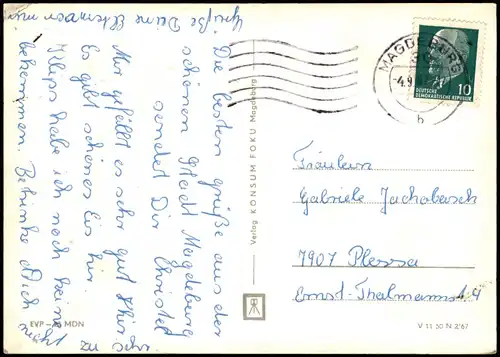 Die besten Grüße aus der
schönen Stadt Magdeburg
sendet Dir Christel
Mir gefällt es sehr gut hier.
Es gibt schönes Eis hier.
Klaps habe ich noch keine
bekommen. Betrinke dich nicht
zu sehr
Grüße Deine Eltern von mir
Verlag KONSUM FOKU Magdeburg
MAGDEBURG
-4.9.
b
10
DEUTSCHE
DEMOKRATISCHE REPUBLIK
Fräulein
Gabriele Jachobasch
7907 Plessa
Ernst-Thälmannst. 4
EVP — MDN
V 11 50 N 2/67